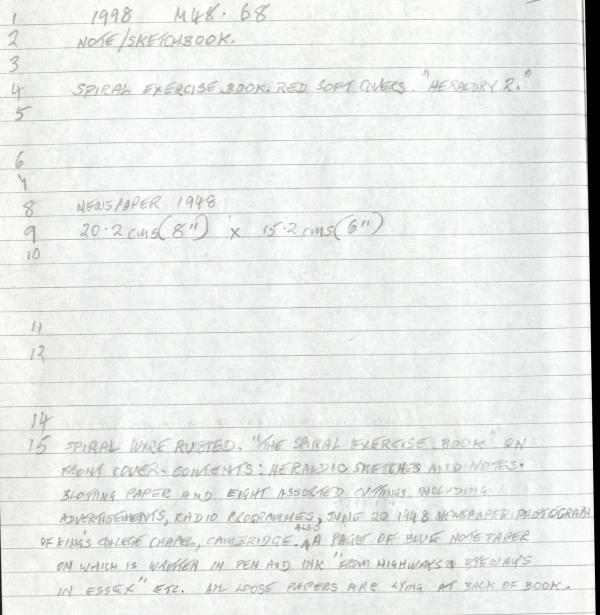 1 1998 M48.68
2 NOTE/SKETCHBOOK.
3
4 SPIRAL EXERCISE BOOK. RED SOFT COVERS. "HERALDRY 2."
5
6
7
8 NEWSPAPER 1948
9 20.2 cms (8") x 15.2 cms (6")
10
11
12
14
15 SPIRAL WIRE RUSTED. "THE SPIRAL EXERCISE BOOK" ON
FRONT COVER. CONTENTS: HERALDIC SKETCHES AND NOTES.
BLOTTING PAPER AND EIGHT ASSORTED CUTTINGS, INCLUDING
ADVERTISEMENTS, RADIO PROGRAMMES, JUNE 20 1948 NEWSPAPER PHOTOGRAPH
OF KING'S COLLEGE CHAPEL, CAMBRIDGE. ALSO A PAGE OF BLUE NOTEPAPER
ON WHICH IS WRITTEN IN PEN AND INK "FROM HIGHWAYS & BYEWAYS
IN ESSEX" ETC. ALL LOOSE PAPERS ARE LYING AT BACK OF BOOK.